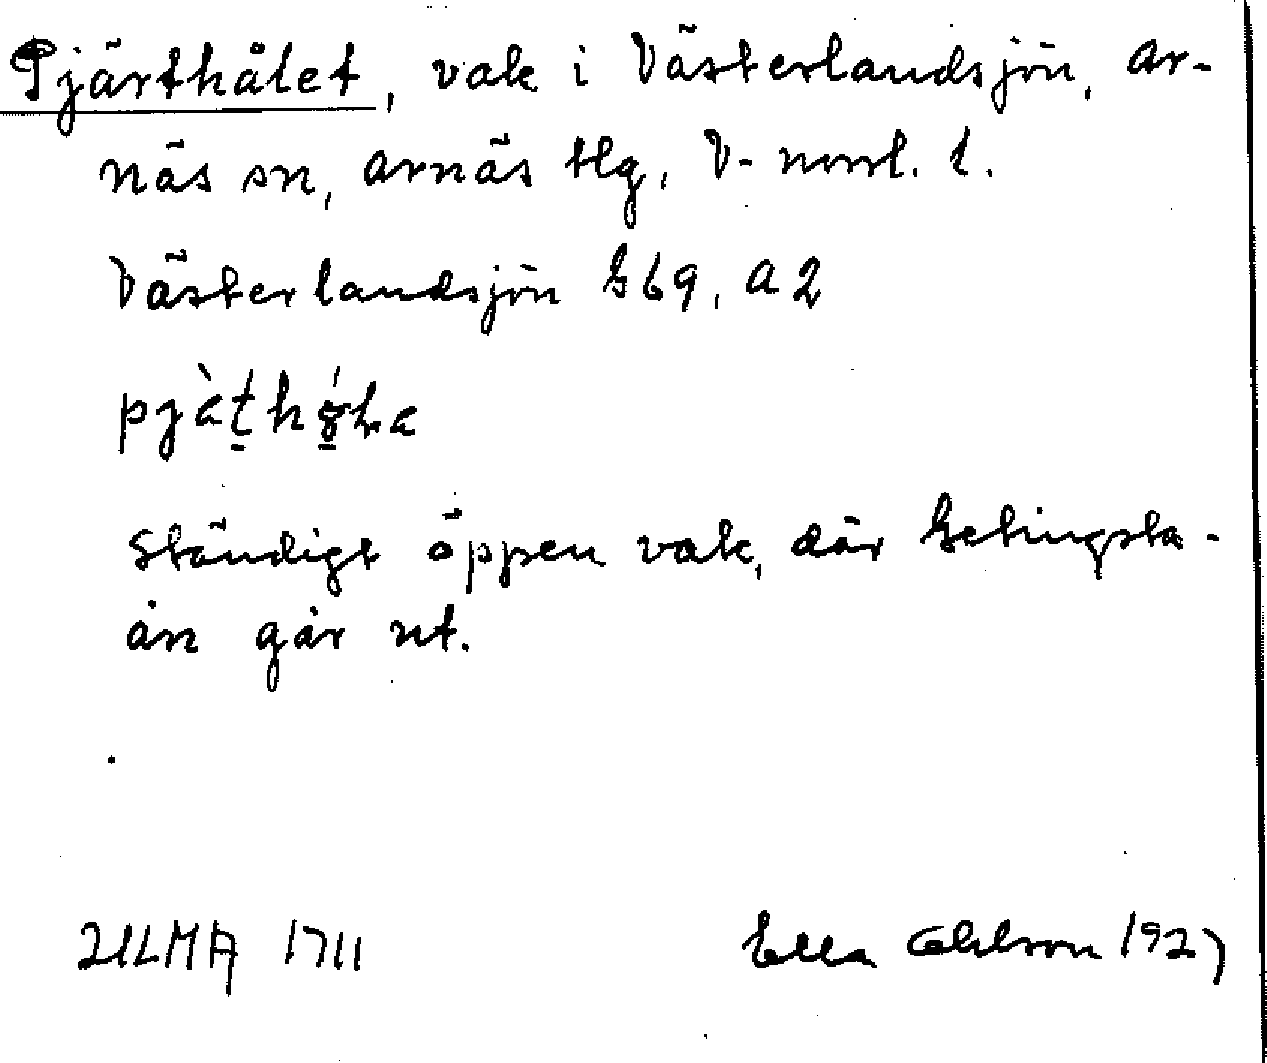 Pjärthålet, vak i Västerlandsjön, Ar-
näs sn, Arnäs tlg, V-norrl. l.
Västerlandsjön G69, A2
Ständigt öppen vak, där Getingsta-
ån går ut.
ULMA 1711 Ella Ohlson 1927